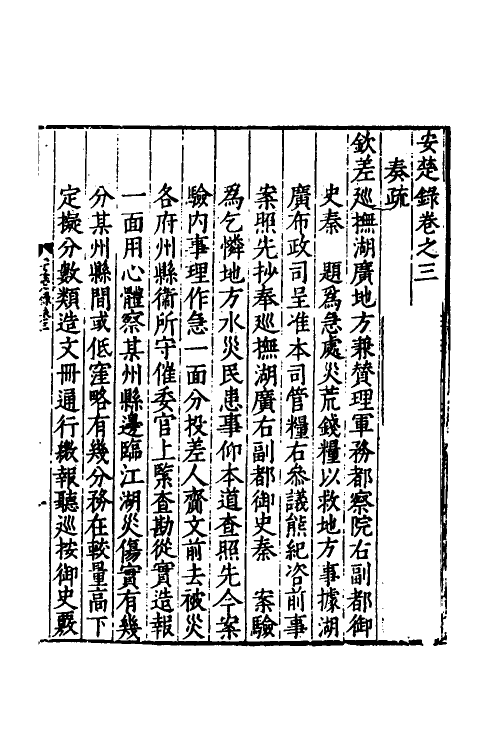 安楚錄卷之三
奏疏
欽差巡撫湖廣地方兼贊理軍務都察院右副都御
史秦　題爲急處災荒錢糧以救地方事據湖
廣布政司呈准本司管糧右參議熊紀咨前事
案照先抄奉巡撫湖廣右副都御史秦　案驗
爲乞憐地方水災民患事仰本道查照先今案
驗內事理作急一面分投差人齎文前去被災
各府州縣衞所守催委官上緊查勘從實造報
一面用心體察某州縣邊臨江湖災傷實有幾
分某州縣間或低窪略有幾分務在較量高下
定擬分數類造文冊通行繳報聽巡按御史覈